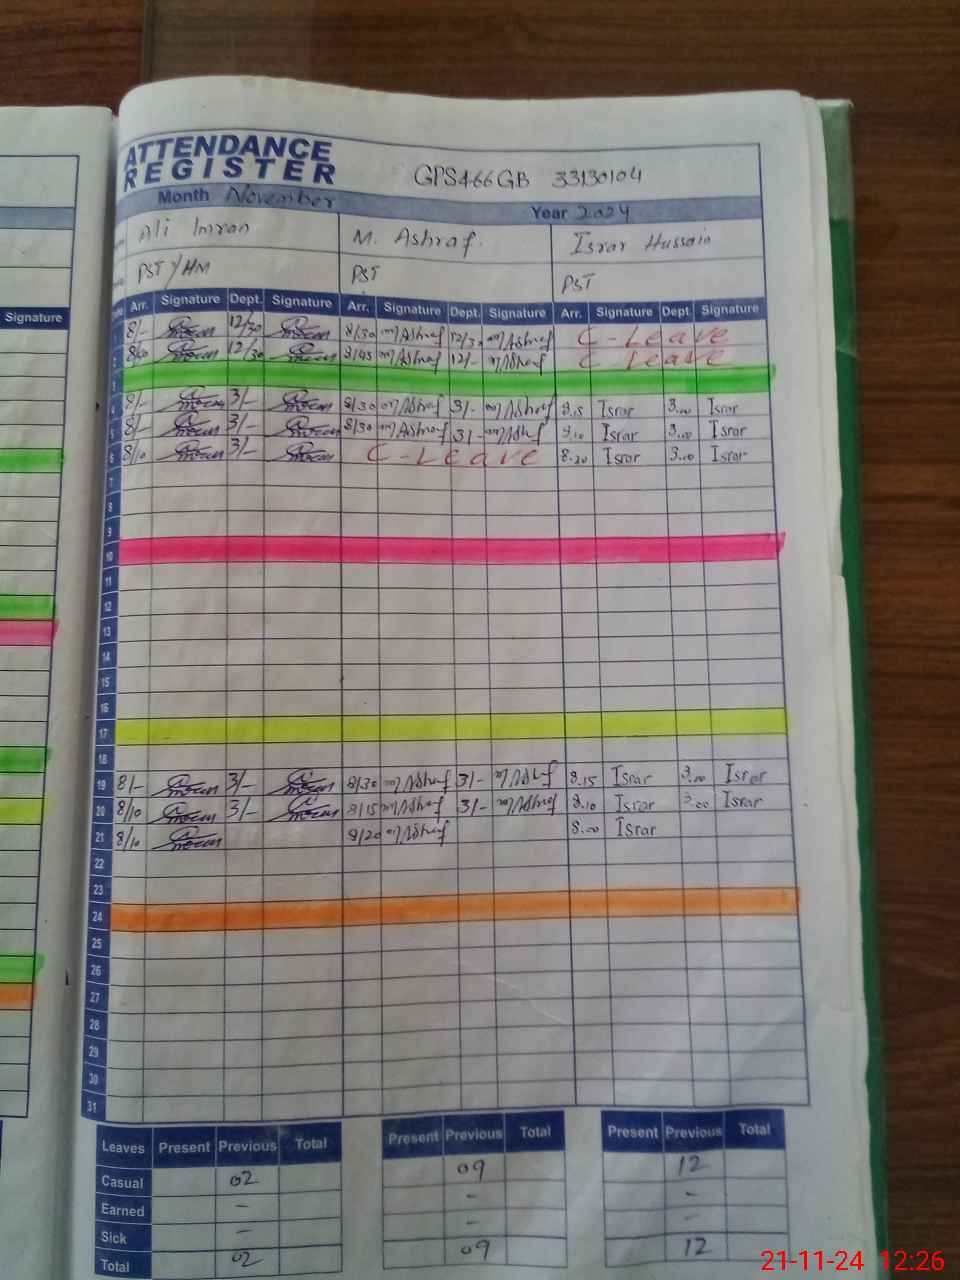 ATTENDANCE
REGISTER
GPS466GB 33130104
Month November
Year 2024
Ali Imran M. Ashraf. Israr Hussain
PST/HM PST PST
Signature
Arr. Signature Dept. Signature Arr. Signature Dept. Signature Arr. Signature Dept. Signature
1 8/- 12/30 8/30 Ashraf 12/30 Ashraf C-Leave
2 12/30 8/45 Ashraf 12/- Ashraf C Leave
3
4 8/- 3/- 8/30 Ashraf 3/- Ashraf 8.15 Israr 3.00 Israr
5 8/- 3/- 8/30 Ashraf 3/- Ashraf 8.10 Israr 3.00 Israr
6 8/10 3/- C-Leave 8.20 Israr 3.00 Israr
7
8
9
10
11
12
13
14
15
16
17
18
19 8/- 3/- 8/30 Ashraf 3/- Ashraf 8.15 Israr 3.00 Israr
20 8/10 3/- 8/15 Ashraf 3/- Ashraf 8.10 Israr 3.00 Israr
21 8/10 8/20 Ashraf 8.00 Israr
22
23
24
25
26
27
28
29
30
31
Leaves Present Previous Total Present Previous Total Present Previous Total
Casual 02 09 12
Earned - - -
Sick - - -
Total 02 09 12
21-11-24 12:26